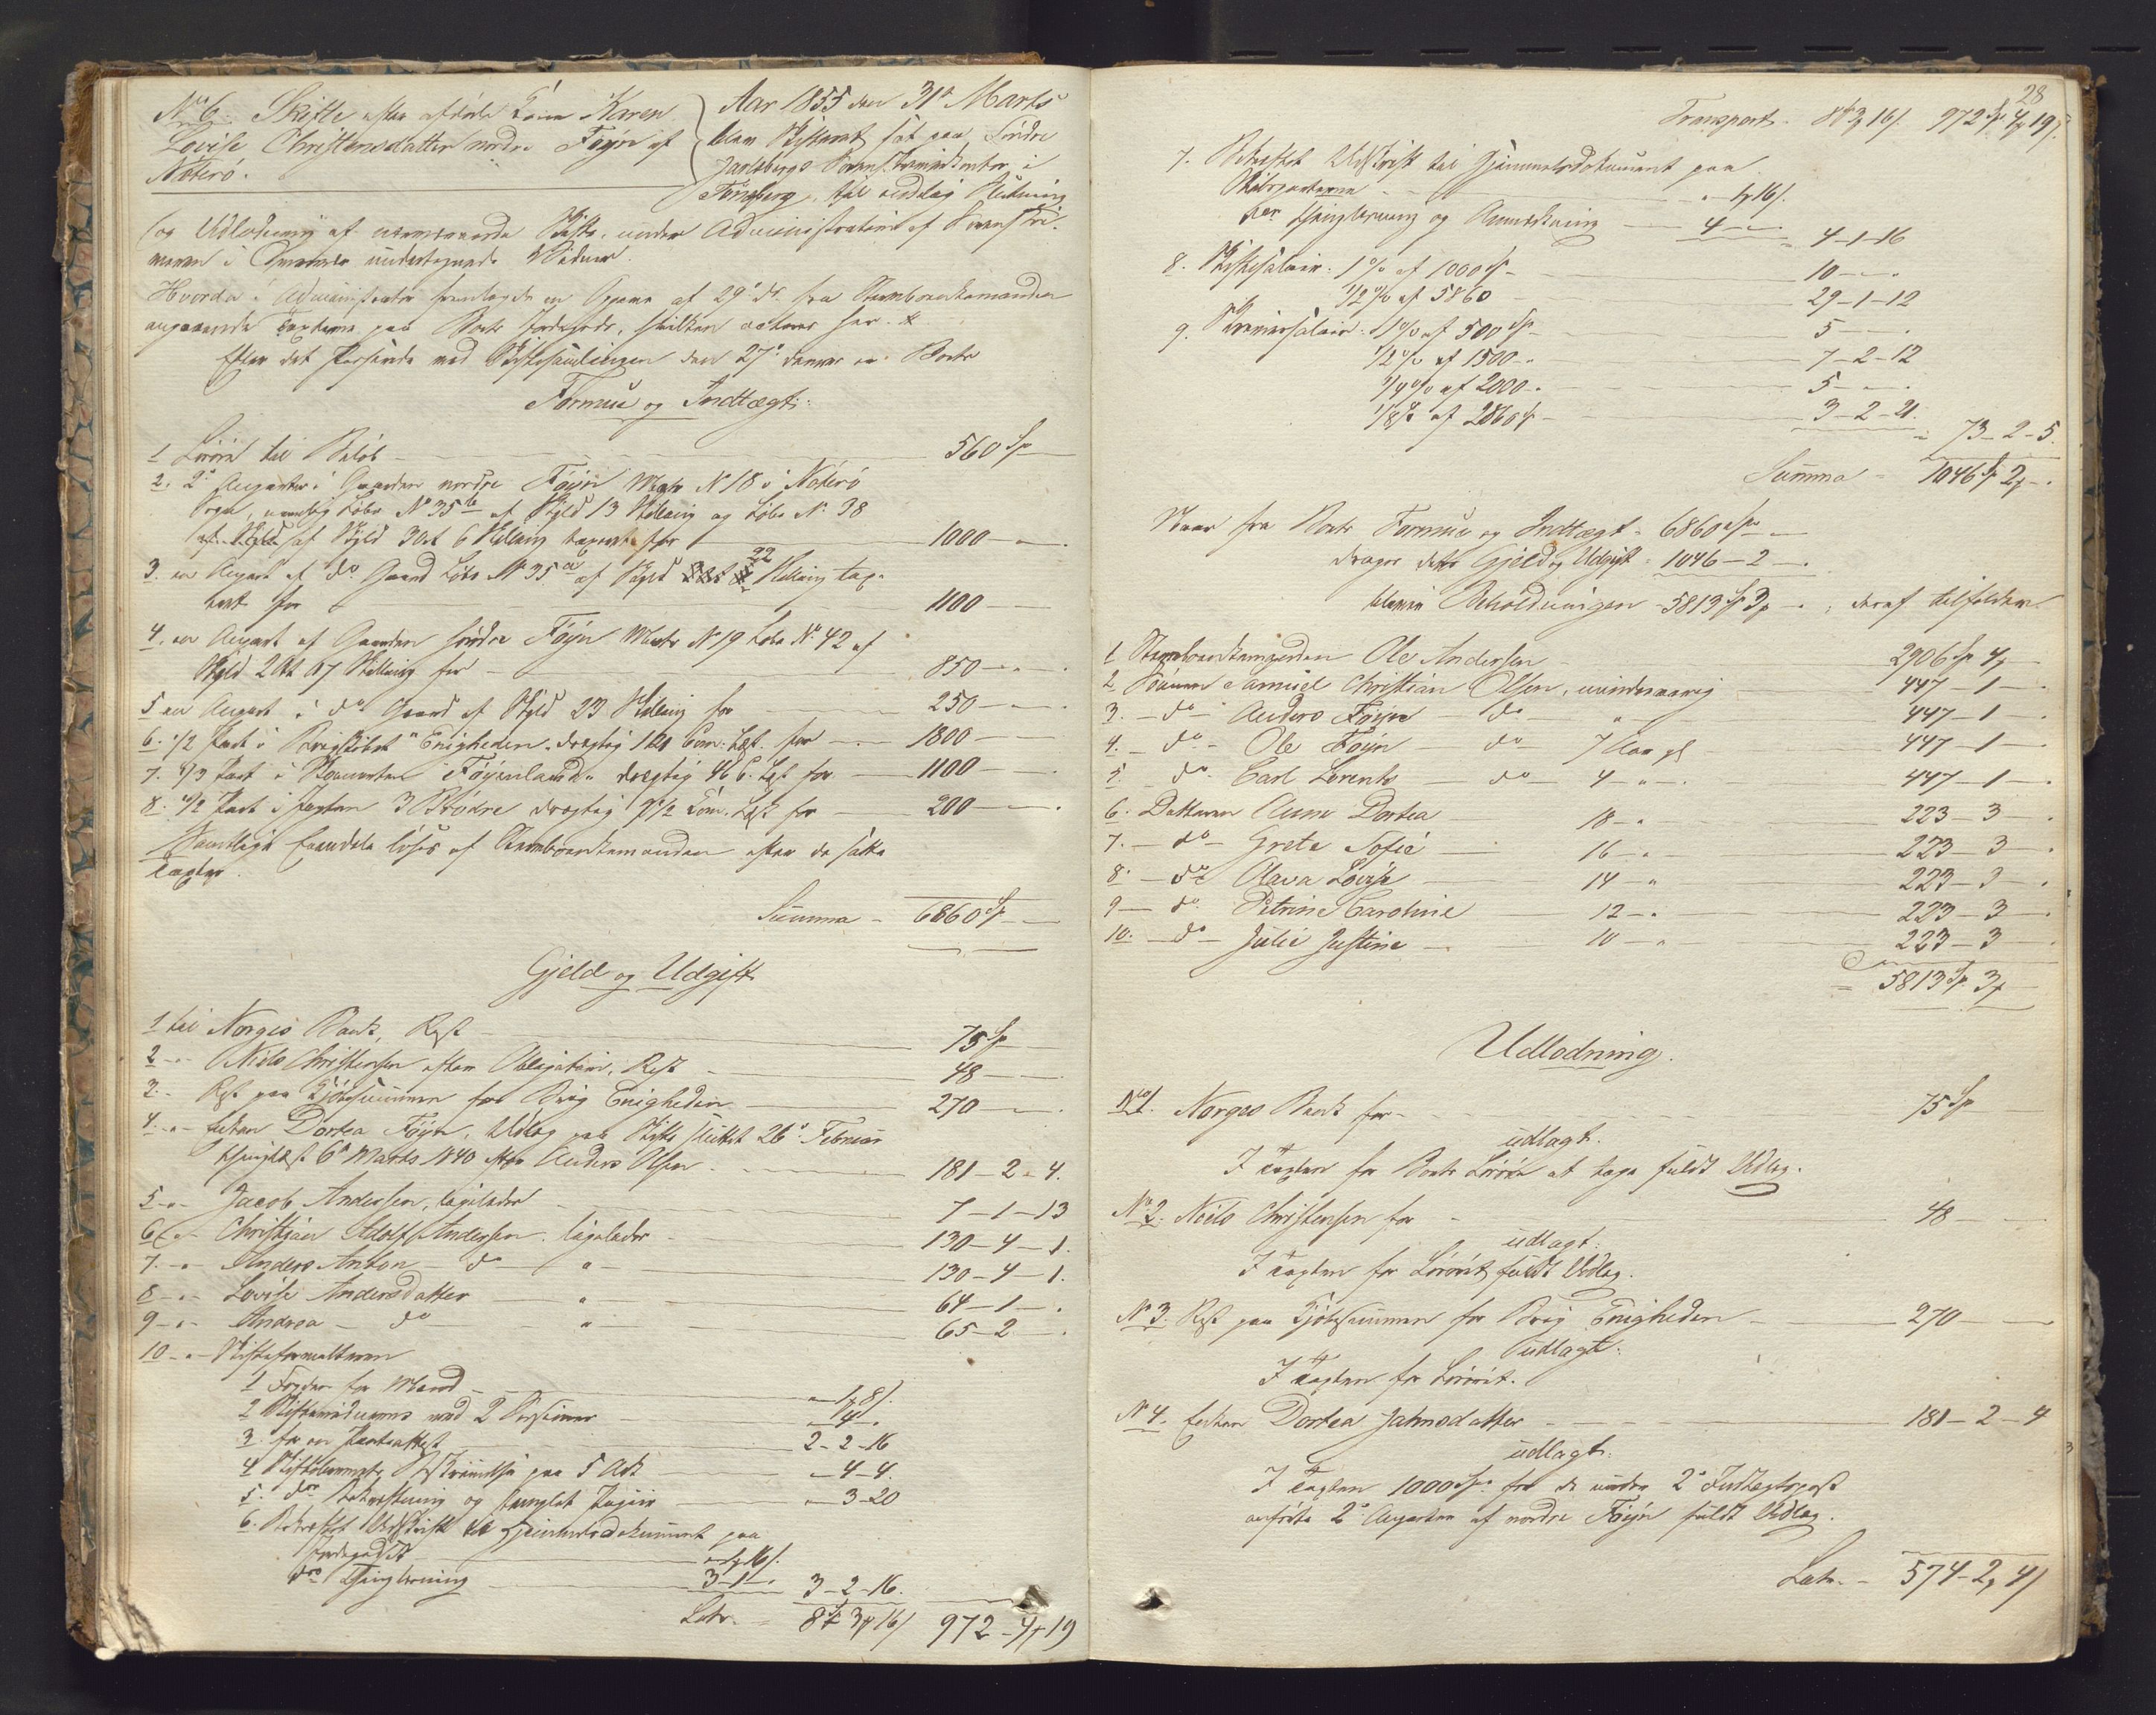 No 6. Skifte efter afdøde Kone Karen
Lovise Christensdatter nordre Føyn af
Nøterø.
Aar 1855 den 31te Marts
blev Skifteret sat paa Søndre
Jarlsbergs Sorenskriverkontor i
Tønsberg, til endelig Slutning
og Udlodning af nærværende Skifte, under Administration af Sorenskri-
veren i Overvær undertegnede Vidner.
Hvorda Administrator fremlagde en Opgave af 29de ds. fra Stervboenkemanden
angaaende Taxterne paa Boets Jordegods, hvilken acteres her. #
Efter det Passerede ved Skiftesamlingen den 27de Januar er Boets
Formue og Indtægt:
1 Løsøre til Beløb - 560 Sp
2. 2de Anparter i Gaarden nordre Føyn Matr No 18 i Nøterø
Sogn, nemlig Løbe No 35b af Skyld 13 Skilling og Løbe No 38
af Skyld 3 Ort 6 Skilling taxeret for 1000 - " - "
3. en Anpart af do Gaard Løbe No 35a af Skyld 22 Skilling tax-
eret for 1100 -
4. en Anpart af Gaarden søndre Føyn Matr No 19 Løbe No 42 af
Skyld 2 Ort 17 Skilling for - 850 - " - "
5 en Anpart i do Gaard af Skyld 23 Skilling for 250 - " - "
6. 1/2 Part i Brigskibet "Enigheden" drægtig Com: Læst. for - 1800 -
7. 1/3 Part i Skonnerten "Føyenland" drægtig 46 C. Læst for - 1100 -
8. 1/2 Part i Jagten 3 Brødre drægtig 7 1/2 Com. Læst for - 200 - " - "
Samtlige Eiendele løses af Stervboenkemanden efter de satte
Taxter.
Summa - 6860 Sp
Gjeld og Udgift
1 til Norges Bank, Rest - 75 Sp
2 - " - Niels Christensen efter Obligation, Rest - 48 -
3 - Rest paa Kjøbesummen for Brig Enigheden - 270 -
4 - " - Enken Dortea Føyn, Udlæg paa Skifte sluttet 26de Februar
thinglæst 6te Marts 1840 efter Anders Olsen - 181 - 2 - 4.
5 - " - Jacob Andersen, ligeledes - 7 - 1 - 13
6 - " - Christian Adolf Andersen. ligeledes - 130 - 4 - 1.
7. - " - Anders Anton - do - " - 130 - 4 - 1.
8 - " - Lovise Andersdatter - " 64 - 1 - "
9 - " - Andrea - do - " 65 - 2 - "
10 - " - Skifteforvalteren
1 Foged for Mand - " - 1 8 s.
2 Skiftevidnerne med 2 Personer - 4
3 for en Pantattest 2 - 2 - 16
4 Skiftebrevets Beskrivelse paa 5 Ark - 4 - 4.
5. do Bekræftning og stemplet Papiir - 3 - 20
6. Bekræftet Udskrift til Hjemmelsdokument paa
Jordegodset - 1 16 s.
do Thinglæsning 3 - 1 - " 3 - 2 - 16.
Latr. 8 Sp 3 16 s 972 - 4 - 19
28
Transport - 8 Sp 3 16 s. 972 Sp 4 19 s.
7. Bekræftet Udskrift til Hjemmelsdokument paa
Skibsparterne - " - 1 16 s.
for Thinglæsning og Anmerkning - 4 - " = 4 - 1 - 16
8. Skiftesalair: 1% af 1000 Sp - 10 - - "
1/2 % af 5860 - 29 - 1 - 12
9. Skriversalair: 1% af 500 Sp 5 -
1/2 % af 1500 - 7 - 2 - 12
1/4 % af 2000 - 5 -
1/8 % af 2860 Sp - 3 - 2 - 21.
= 73 - 2 - 5.
Summa - 1046 Sp 2
Naar fra Boets Formue og Indtægt = 6860 Sp -
drages dets Gjeld og Udgift = 1046 - 2 -
bliver Beholdningen - 5813 Sp 3 -; deraf tilfalder
1 Stervboenkemanden Ole Andersen - 2906 Sp 4
2 Sønnen Samuel Christian Olsen, mindreaarig 447 - 1 -
3. - do - Anders Føyn - do - " 447 - 1 -
4. - do - Ole Føyn - do - 7 Aar gl 447 - 1 -
5. do - Carl Lorents do - 4 - " 447 - 1 -
6. Datteren Anne Dortea 18 - " 223 - 3 -
7. - do - Grete Sofie - 16 - " 223 - 3 -
8. - do - Olava Lovise 14 - " 223 - 3 -
9 - do Petrine Caroline 12 - " 223 - 3
10. - do - Julie Justine - 10 - " 223 - 3
= 5813 Sp 3
Udlodning.
No 1. Norges Bank for - 75 Sp
udlagt.
I Taxten for Boets Løsøre at tage fuldt Udlæg.
No 2. Niels Christensen for - 48 -
udlagt:
I Taxten for Løsøret fuldt Udlæg.
No 3. Rest paa Kjøbesummen for Brig Enigheden - 270 -
udlagt:
I Taxten for Løsøret.
No 4. Enken Dortea Jahnsdatter - 181 - 2 - 4
udlagt:
I Taxten 1000 Sp. for de under 2den Indtægtspost
anførte 2de Anparter af nordre Føyn fuldt Udlæg.
Latr. - 574 - 2 4 s